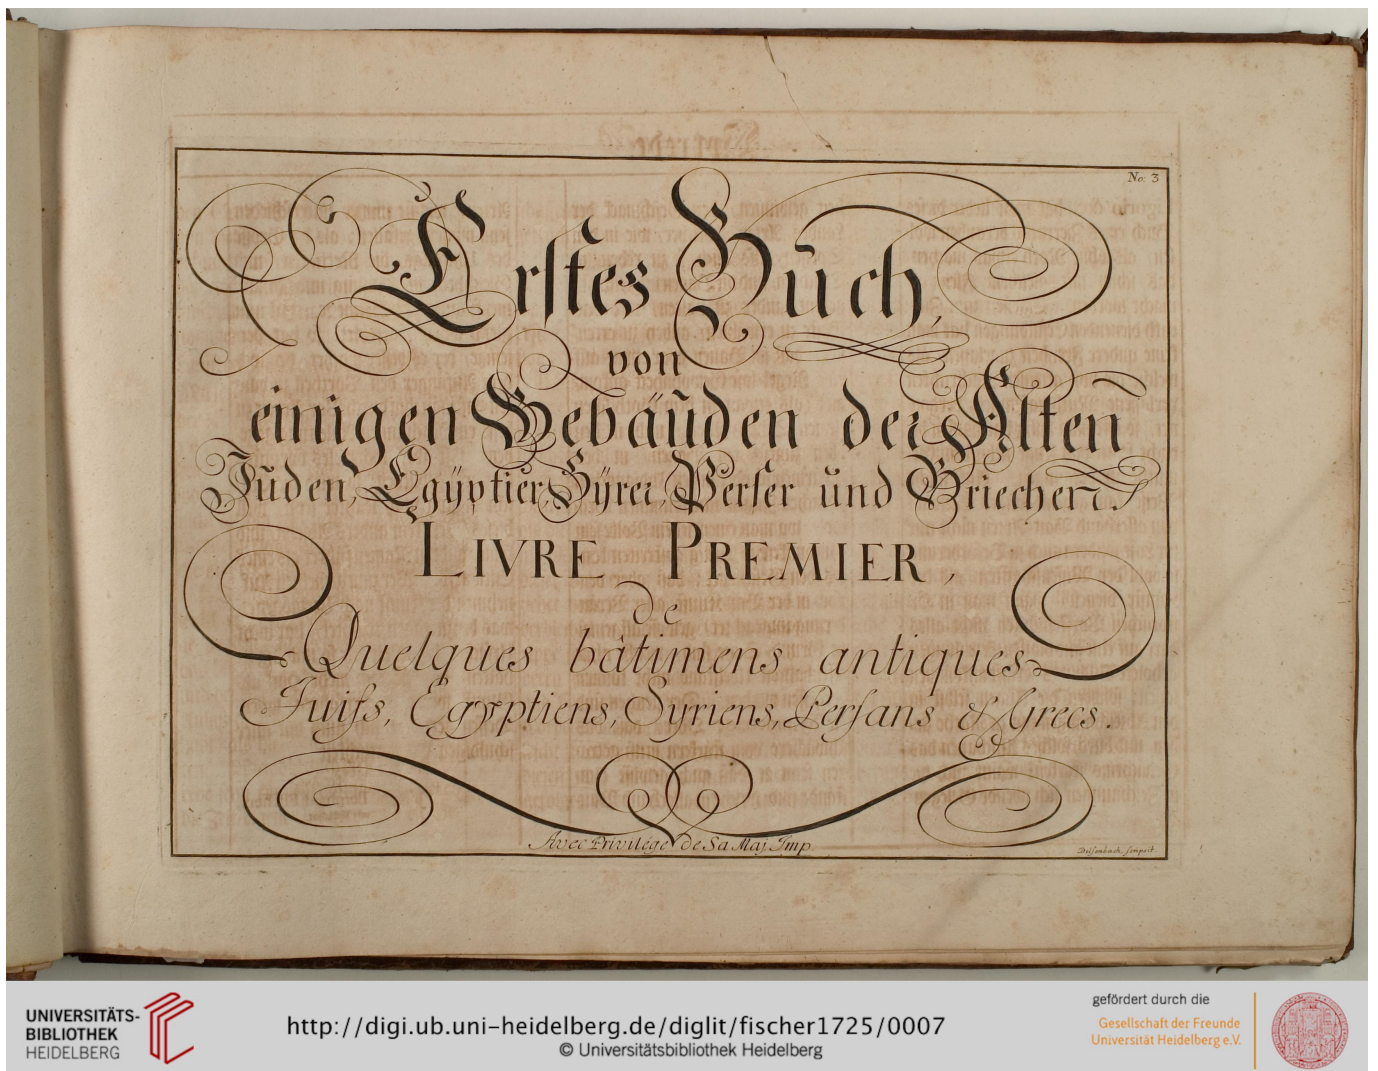 No: 3
Erstes Buch,
von
einigen Gebäuden der Alten
Juden, Egÿptier, Sÿrer, Perser und Griechen.
LIVRE PREMIER,
de
Quelques bâtimens antiques
Juifs, Egyptiens, Syriens, Persans & Grecs.
Avec Privilége de Sa Maj. Imp.
Delsenbach sculpsit.
UNIVERSITÄTS-
BIBLIOTHEK
HEIDELBERG
http://digi.ub.uni-heidelberg.de/diglit/fischer1725/0007
© Universitätsbibliothek Heidelberg
gefördert durch die
Gesellschaft der Freunde
Universität Heidelberg e.V.